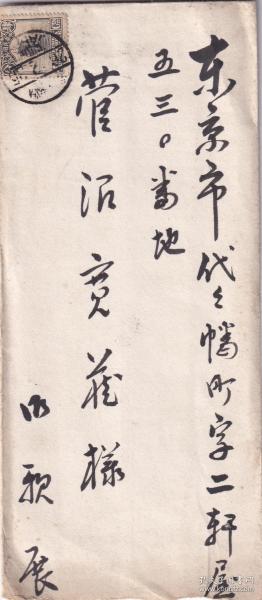 東京市代々幡町字二軒屋
五三〇番地
菅沼寛蔵様
御親展